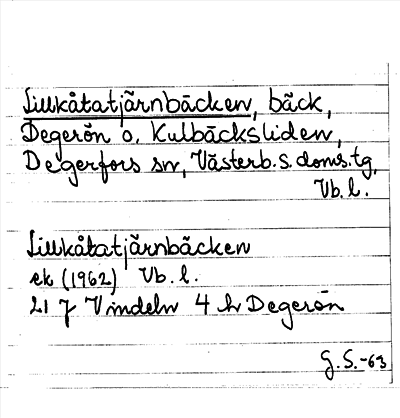 Lillkåtatjärnbäcken, bäck,
Degerön o. Kulbäcksliden,
Degerfors sn, Västerb. s. doms.tg,
Vb. l.
Lillkåtatjärnbäcken
ek (1962) Vb. l.
21 J Vindeln 4 h Degerön
G. S. -63